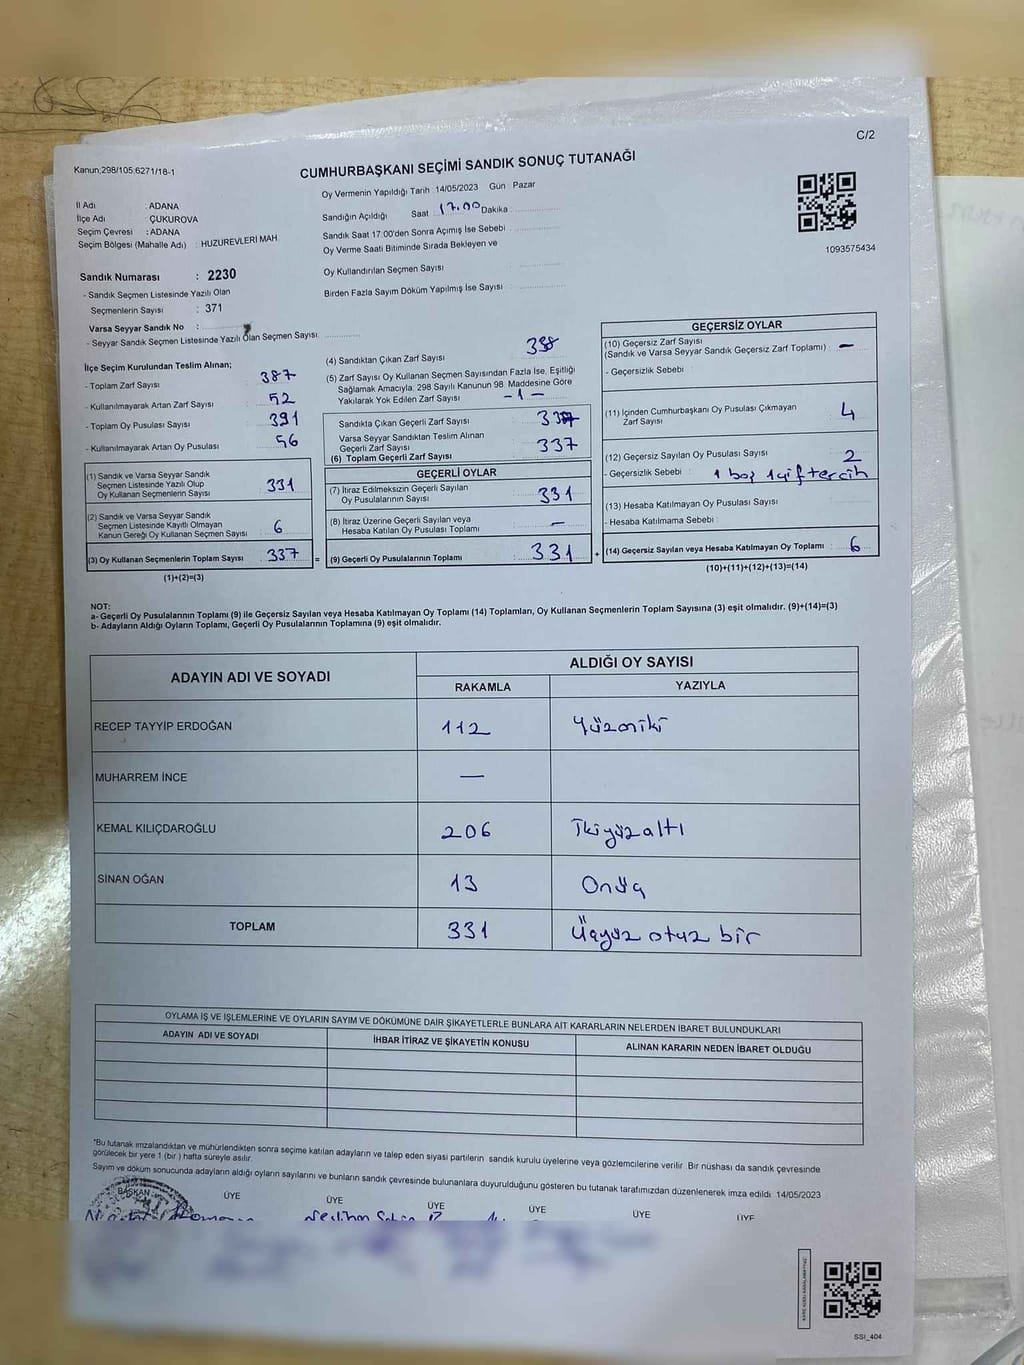 C/2
Kanun;298/105,6271/18-1
CUMHURBAŞKANI SEÇİMİ SANDIK SONUÇ TUTANAĞI
Oy Vermenin Yapıldığı Tarih 14/05/2023 Gün Pazar
İl Adı : ADANA
İlçe Adı : ÇUKUROVA
Seçim Çevresi : ADANA
Seçim Bölgesi (Mahalle Adı) : HUZUREVLERİ MAH.
Sandığın Açıldığı Saat 17.00 Dakika
Sandık Saat 17.00'den Sonra Açımış İse Sebebi :
Oy Verme Saati Bitiminde Sırada Bekleyen ve
Oy Kullandırılan Seçmen Sayısı :
Birden Fazla Sayım Döküm Yapılmış İse Sayısı :
1093575434
Sandık Numarası : 2230
- Sandık Seçmen Listesinde Yazılı Olan
Seçmenlerin Sayısı : 371
Varsa Seyyar Sandık No :
- Seyyar Sandık Seçmen Listesinde Yazılı Olan Seçmen Sayısı:
İlçe Seçim Kurulundan Teslim Alınan;
- Toplam Zarf Sayısı 387
- Kullanılmayarak Artan Zarf Sayısı 52
- Toplam Oy Pusulası Sayısı 391
- Kullanılmayarak Artan Oy Pusulası 56
(1) Sandık ve Varsa Seyyar Sandık
Seçmen Listesinde Yazılı Olup
Oy Kullanan Seçmenlerin Sayısı 331
(2) Sandık ve Varsa Seyyar Sandık
Seçmen Listesinde Kayıtlı Olmayan
Kanun Gereği Oy Kullanan Seçmen Sayısı 6
(3) Oy Kullanan Seçmenlerin Toplam Sayısı 337 =
(1)+(2)=(3)
(4) Sandıktan Çıkan Zarf Sayısı 338
(5) Zarf Sayısı Oy Kullanan Seçmen Sayısından Fazla İse, Eşitliği
Sağlamak Amacıyla, 298 Sayılı Kanunun 98. Maddesine Göre
Yakılarak Yok Edilen Zarf Sayısı -1-
Sandıkta Çıkan Geçerli Zarf Sayısı : 337
Varsa Seyyar Sandıktan Teslim Alınan
Geçerli Zarf Sayısı
(6) Toplam Geçerli Zarf Sayısı : 337
GEÇERLİ OYLAR
(7) İtiraz Edilmeksizin Geçerli Sayılan
Oy Pusulalarının Sayısı : 331
(8) İtiraz Üzerine Geçerli Sayılan veya
Hesaba Katılan Oy Pusulası Toplamı : —
(9) Geçerli Oy Pusulalarının Toplamı : 331 +
GEÇERSİZ OYLAR
(10) Geçersiz Zarf Sayısı
(Sandık ve Varsa Seyyar Sandık Geçersiz Zarf Toplamı) : —
- Geçersizlik Sebebi :
(11) İçinden Cumhurbaşkanı Oy Pusulası Çıkmayan
Zarf Sayısı : 4
(12) Geçersiz Sayılan Oy Pusulası Sayısı : 2
- Geçersizlik Sebebi : 1 boş 1 çift tercih
(13) Hesaba Katılmayan Oy Pusulası Sayısı :
- Hesaba Katılmama Sebebi :
(14) Geçersiz Sayılan veya Hesaba Katılmayan Oy Toplamı : 6
(10)+(11)+(12)+(13)=(14)
NOT:
a- Geçerli Oy Pusulalarının Toplamı (9) ile Geçersiz Sayılan veya Hesaba Katılmayan Oy Toplamı (14) Toplamları, Oy Kullanan Seçmenlerin Toplam Sayısına (3) eşit olmalıdır. (9)+(14)=(3)
b- Adayların Aldığı Oyların Toplamı, Geçerli Oy Pusulalarının Toplamına (9) eşit olmalıdır.
ADAYIN ADI VE SOYADI ALDIĞI OY SAYISI
RAKAMLA YAZIYLA
RECEP TAYYİP ERDOĞAN 112 Yüzoniki
MUHARREM İNCE —
KEMAL KILIÇDAROĞLU 206 İkiyüzaltı
SİNAN OĞAN 13 Onüç
TOPLAM 331 Üçyüz otuz bir
OYLAMA İŞ VE İŞLEMLERİNE VE OYLARIN SAYIM VE DÖKÜMÜNE DAİR ŞİKAYETLERLE BUNLARA AİT KARARLARIN NELERDEN İBARET BULUNDUKLARI
ADAYIN ADI VE SOYADI İHBAR İTİRAZ VE ŞİKAYETİN KONUSU ALINAN KARARIN NEDEN İBARET OLDUĞU
*Bu tutanak imzalandıktan ve mühürlendikten sonra seçime katılan adayların ve talep eden siyasi partilerin sandık kurulu üyelerine veya gözlemcilerine verilir. Bir nüshası da sandık çevresinde
görülecek bir yere 1 (bir ) hafta süreyle asılır.
Sayım ve döküm sonucunda adayların aldığı oyların sayılarını ve bunların sandık çevresinde bulunanlara duyurulduğunu gösteren bu tutanak tarafımızdan düzenlenerek imza edildi. 14/05/2023
BAŞKAN ÜYE ÜYE ÜYE ÜYE ÜYE ÜYE
SSI_404